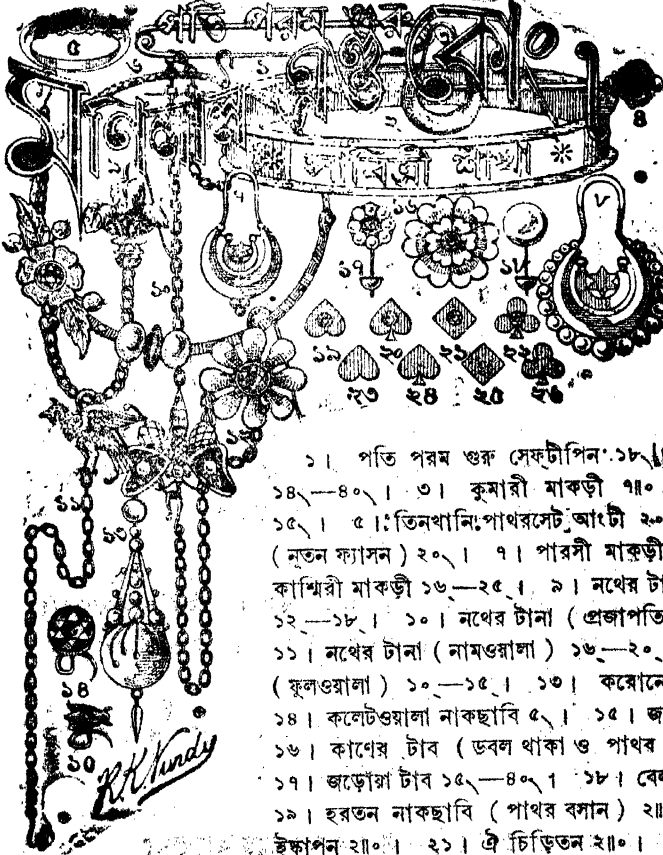 পতি পরম গুরু
সাবিত্রী শাঁখা
৫
৬
১
২
৪
৭
৮
১০
১৬
১৭
১৮
১৯ ২০ ২১ ২২
২৩ ২৪ ২৫ ২৬
১২
১১
১৩
১৪
১৫
R.K.Nundy
১। পতি পরম গুরু সেফ্‌টীপিন ১৮৲
১৪৲—৪০৲। ৩। কুমারী মাকড়ী ৭॥০
১৫৲। ৫। তিনখানি পাথরসেট্ আংটী ২০
(নূতন ফ্যাসন) ২০৲। ৭। পারসী মাক্‌ড়ী
কাশ্মিরী মাকড়ী ১৬৲—২৫৲। ৯। নথের
১২৲—১৮৲। ১০। নথের টানা (প্রজাপতি
১১। নথের টানা (নামওয়ালা) ১৬৲—২০৲
(ফুলওয়ালা) ১০৲—১৫৲। ১৩।
১৪। কলেটওয়ালা নাকছাবি ৫৲। ১৫।
১৬। কাণের টাব (ডবল থাকা ও পাথর
১৭। জড়োয়া টাব ১৫৲—৪০৲। ১৮।
১৯। হরতন নাকছাবি (পাথর বসান) ২॥
ইস্কাপন ২॥০। ২১। ঐ চিড়িতন ২॥০।